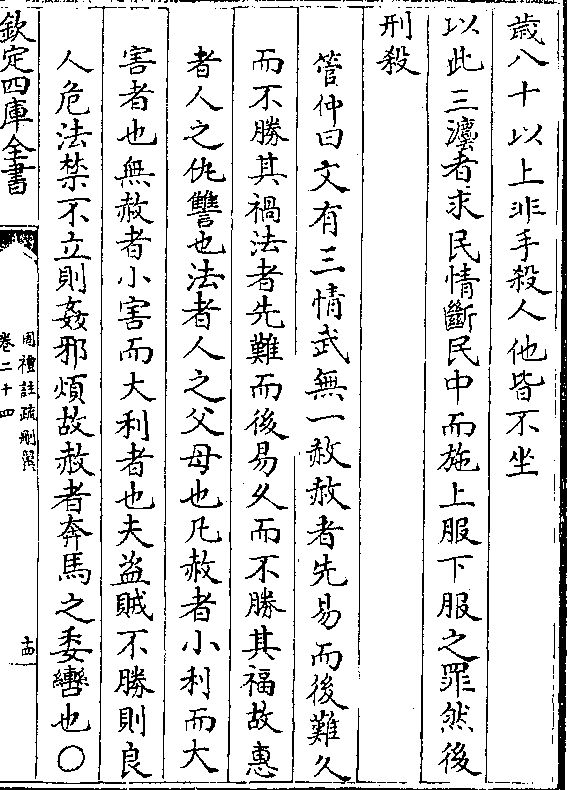 歲八十以上非手殺人他皆不坐
以此三灋者求民情斷民中而施上服下服之罪然後
刑殺
管仲曰文有三情武無一赦赦者先易而後難久
而不勝其禍法者先難而後易久而不勝其福故惠
者人之仇讐也法者人之父母也凡赦者小利而大
害者也無赦者小害而大利者也夫盗賊不勝則良
人危法禁不立則姦邪煩故赦者奔馬之委轡也○
欽定四庫全書
周禮註疏刪翼
卷二十四
十四